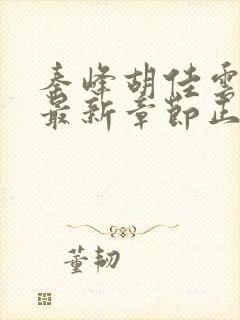 秦峰胡佳雲
最新章節正
董韧